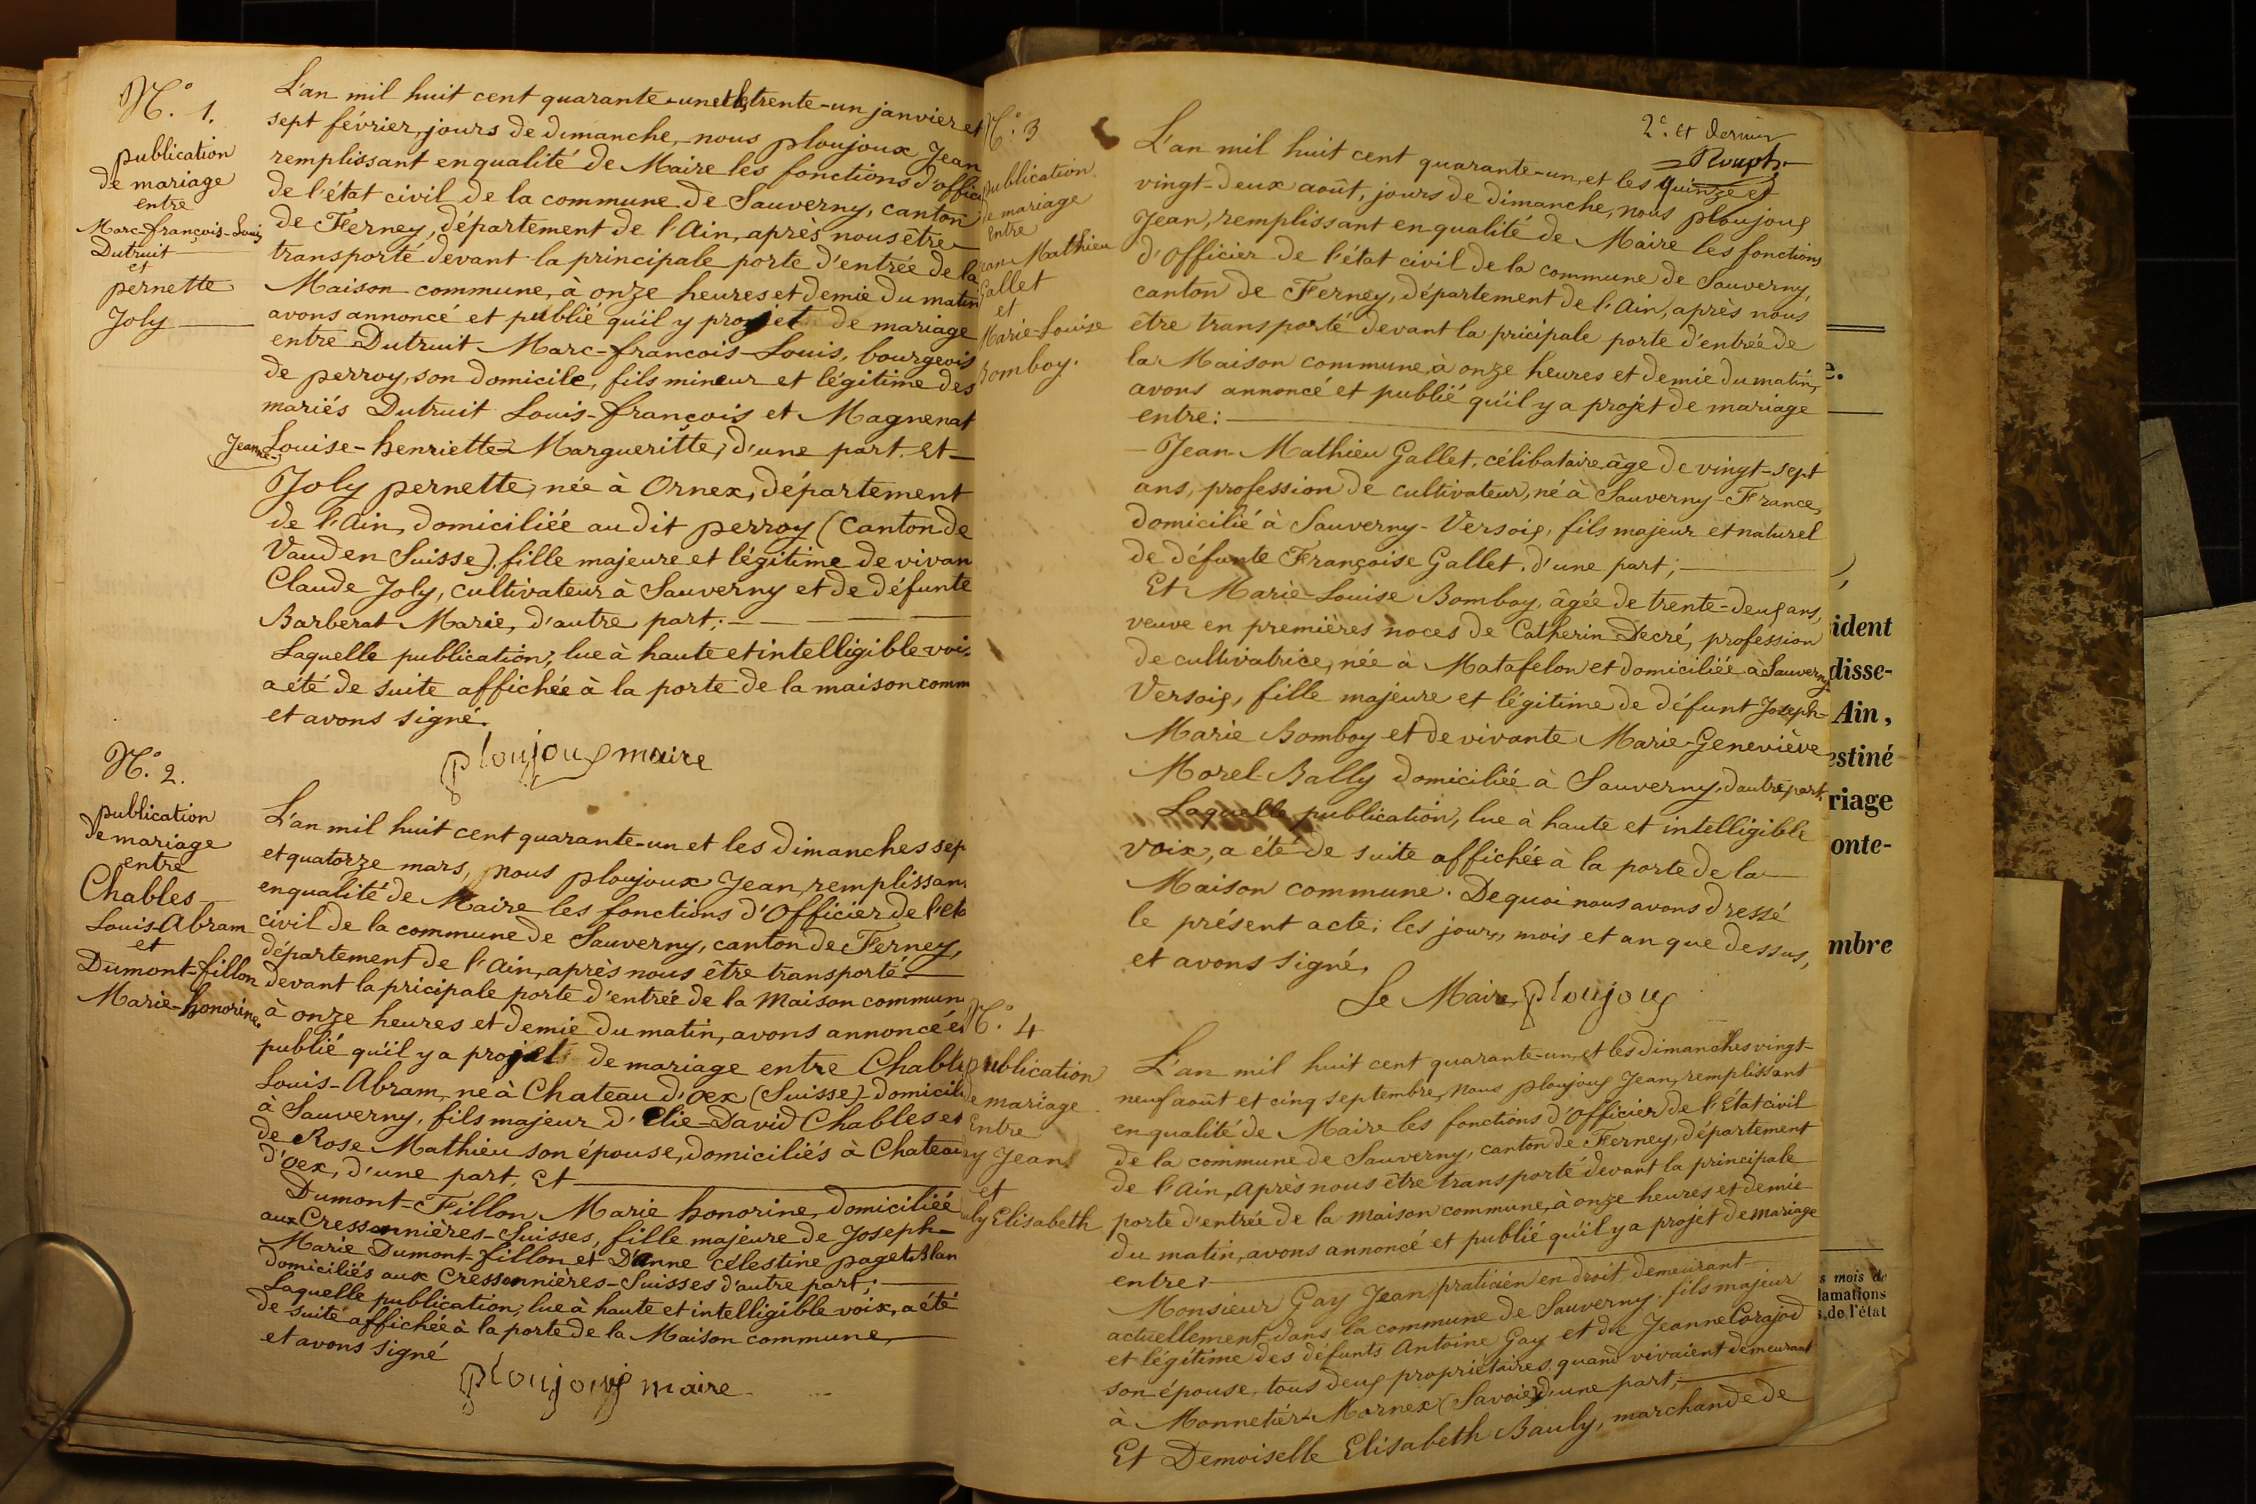 N.° 1.
publication
de mariage
entre
Marc-françois-Louis
Dutruit
et
pernette
Joly
L'an mil huit cent quarante-un et les trente-un janvier et
sept février, jours de dimanche, nous ploujoux Jean
remplissant en qualité de Maire les fonctions d'offici
de l'état civil de la commune de Sauverny, canton
de Ferney, département de l'Ain, après nous être
transporté devant la principale porte d'entrée de la
Maison commune, à onze heures et demie du matin
avons annoncé et publié qu'il y projet de mariage
entre Dutruit Marc-françois-Louis, bourgeois
de perroy, son domicile, fils mineur et légitime des
mariés Dutruit Louis-françois et Magnenat
Jeanne-Louise-henriette-Margueritte, d'une part. et
Joly pernette, née à Ornex, département
de l'Ain, domiciliée au dit perroy (Canton de
Vaud en Suisse), fille majeure et légitime de vivan
Claude Joly, cultivateur à Sauverny et de défunte
Barberat Marie, d'autre part;
Laquelle publication, lue à haute et intelligible voix
a été de suite affichée à la porte de la maison comm
et avons signé.
ploujoux maire
N.° 2.
publication
de mariage
entre
Chables
Louis-Abram
et
Dumont-fillon
Marie-honorine.
L'an mil huit cent quarante-un et les dimanches sep
et quatorze mars, nous ploujoux Jean, remplissan
en qualité de Maire les fonctions d'Officier de l'éta
civil de la commune de Sauverny, canton de Ferney,
département de l'Ain, après nous être transporté
devant la pricipale porte d'entrée de la Maison commun
à onze heures et demie du matin, avons annoncé et
publié qu'il y a projet de mariage entre Chable
Louis-Abram, né à Chateau d'oex (Suisse) domicili
à Sauverny, fils majeur d'Elie-David Chables et
de Rose Mathieu son épouse, domiciliés à Chateau
d'oex, d'une part, et
Dumont-Fillon Marie honorine, domiciliée
aux Cressonnières-Suisses, fille majeure de Joseph-
Marie Dumont-fillon et D'anne Célestine paget-Blan
domiciliés aux Cressonnières-Suisses d'autre part;
Laquelle publication, lue à haute et intelligible voix, a été
de suite affichée à la porte de la Maison commune,
et avons signé
ploujoux maire
2.e et dernier
Rouph
N.° 3
publication
de mariage
Entre
Jean Mathieu
Gallet
et
Marie-Louise
Bomboy.
L'an mil huit cent quarante-un, et les quinze et
vingt-deux août, jours de dimanche, nous ploujoux
Jean, remplissant en qualité de Maire les fonctions
d'Officier de l'état civil de la commune de Sauverny,
canton de Ferney, département de l'Ain, après nous
être transporté devant la pricipale porte d'entrée de
la Maison commune, à onze heures et demie du matin,
avons annoncé et publié qu'il y a projet de mariage
entre:
Jean-Mathieu Gallet, célibataire âge de vingt-sept
ans, profession de cultivateur, né à Sauverny-France,
domicilié à Sauverny-Versoix, fils majeur et naturel
de défunte Françoise Gallet. d'une part;
Et Marie-Louise Bomboy, âgée de trente-deux ans,
veuve en premières noces de Catherin Decré, profession
de cultivatrice, née à Matafelon et domiciliée à Sauverny
Versoix, fille majeure et légitime de défunt Joseph-
Marie Bomboy et de vivante Marie-Geneviève
Morel-Bally domiciliée à Sauverny, d'autre part.
Laquelle publication, lue à haute et intelligible
voix, a été de suite affichée à la porte de la
Maison commune. De quoi nous avons dressé
le présent acte; les jours, mois et an que dessus,
et avons signé,
Le Maire, ploujoux
N.° 4
publication
de mariage
Entre
y Jean
et
uly Elisabeth
L'an mil huit cent quarante-un, et les dimanches vingt-
neuf août et cinq septembre, nous ploujoux Jean, remplissant
en qualité de Maire les fonctions d'Officier de l'Etat civil
de la commune de Sauverny, canton de Ferney, département
de l'Ain, Après nous être transporté devant la principale
porte d'entrée de la maison commune, à onze heures et demie
du matin, avons annoncé et publié qu'il y a projet de mariage
entre
Monsieur Gay Jean praticien en droit, demeurant
actuellement dans la commune de Sauverny. fils majeur
et légitime des défunts Antoine Gay et de Jeanne Corajod
son épouse, tous deux propriétaires, quand vivaient demeurant
à Monnetier-Mornex (Savoie) d'une part;
Et Demoiselle Elisabeth Bauly, marchande de
e.
ident
disse-
Ain,
estiné
riage
onte-
mbre
s mois de
lamations
s de l'état